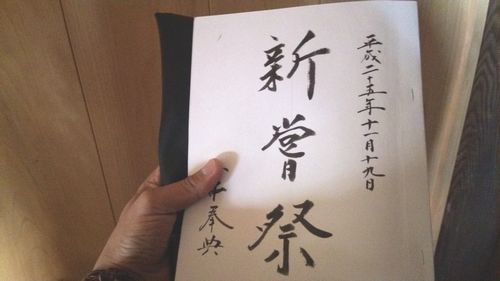 平成二十五年十一月十九日
新嘗祭
奉典